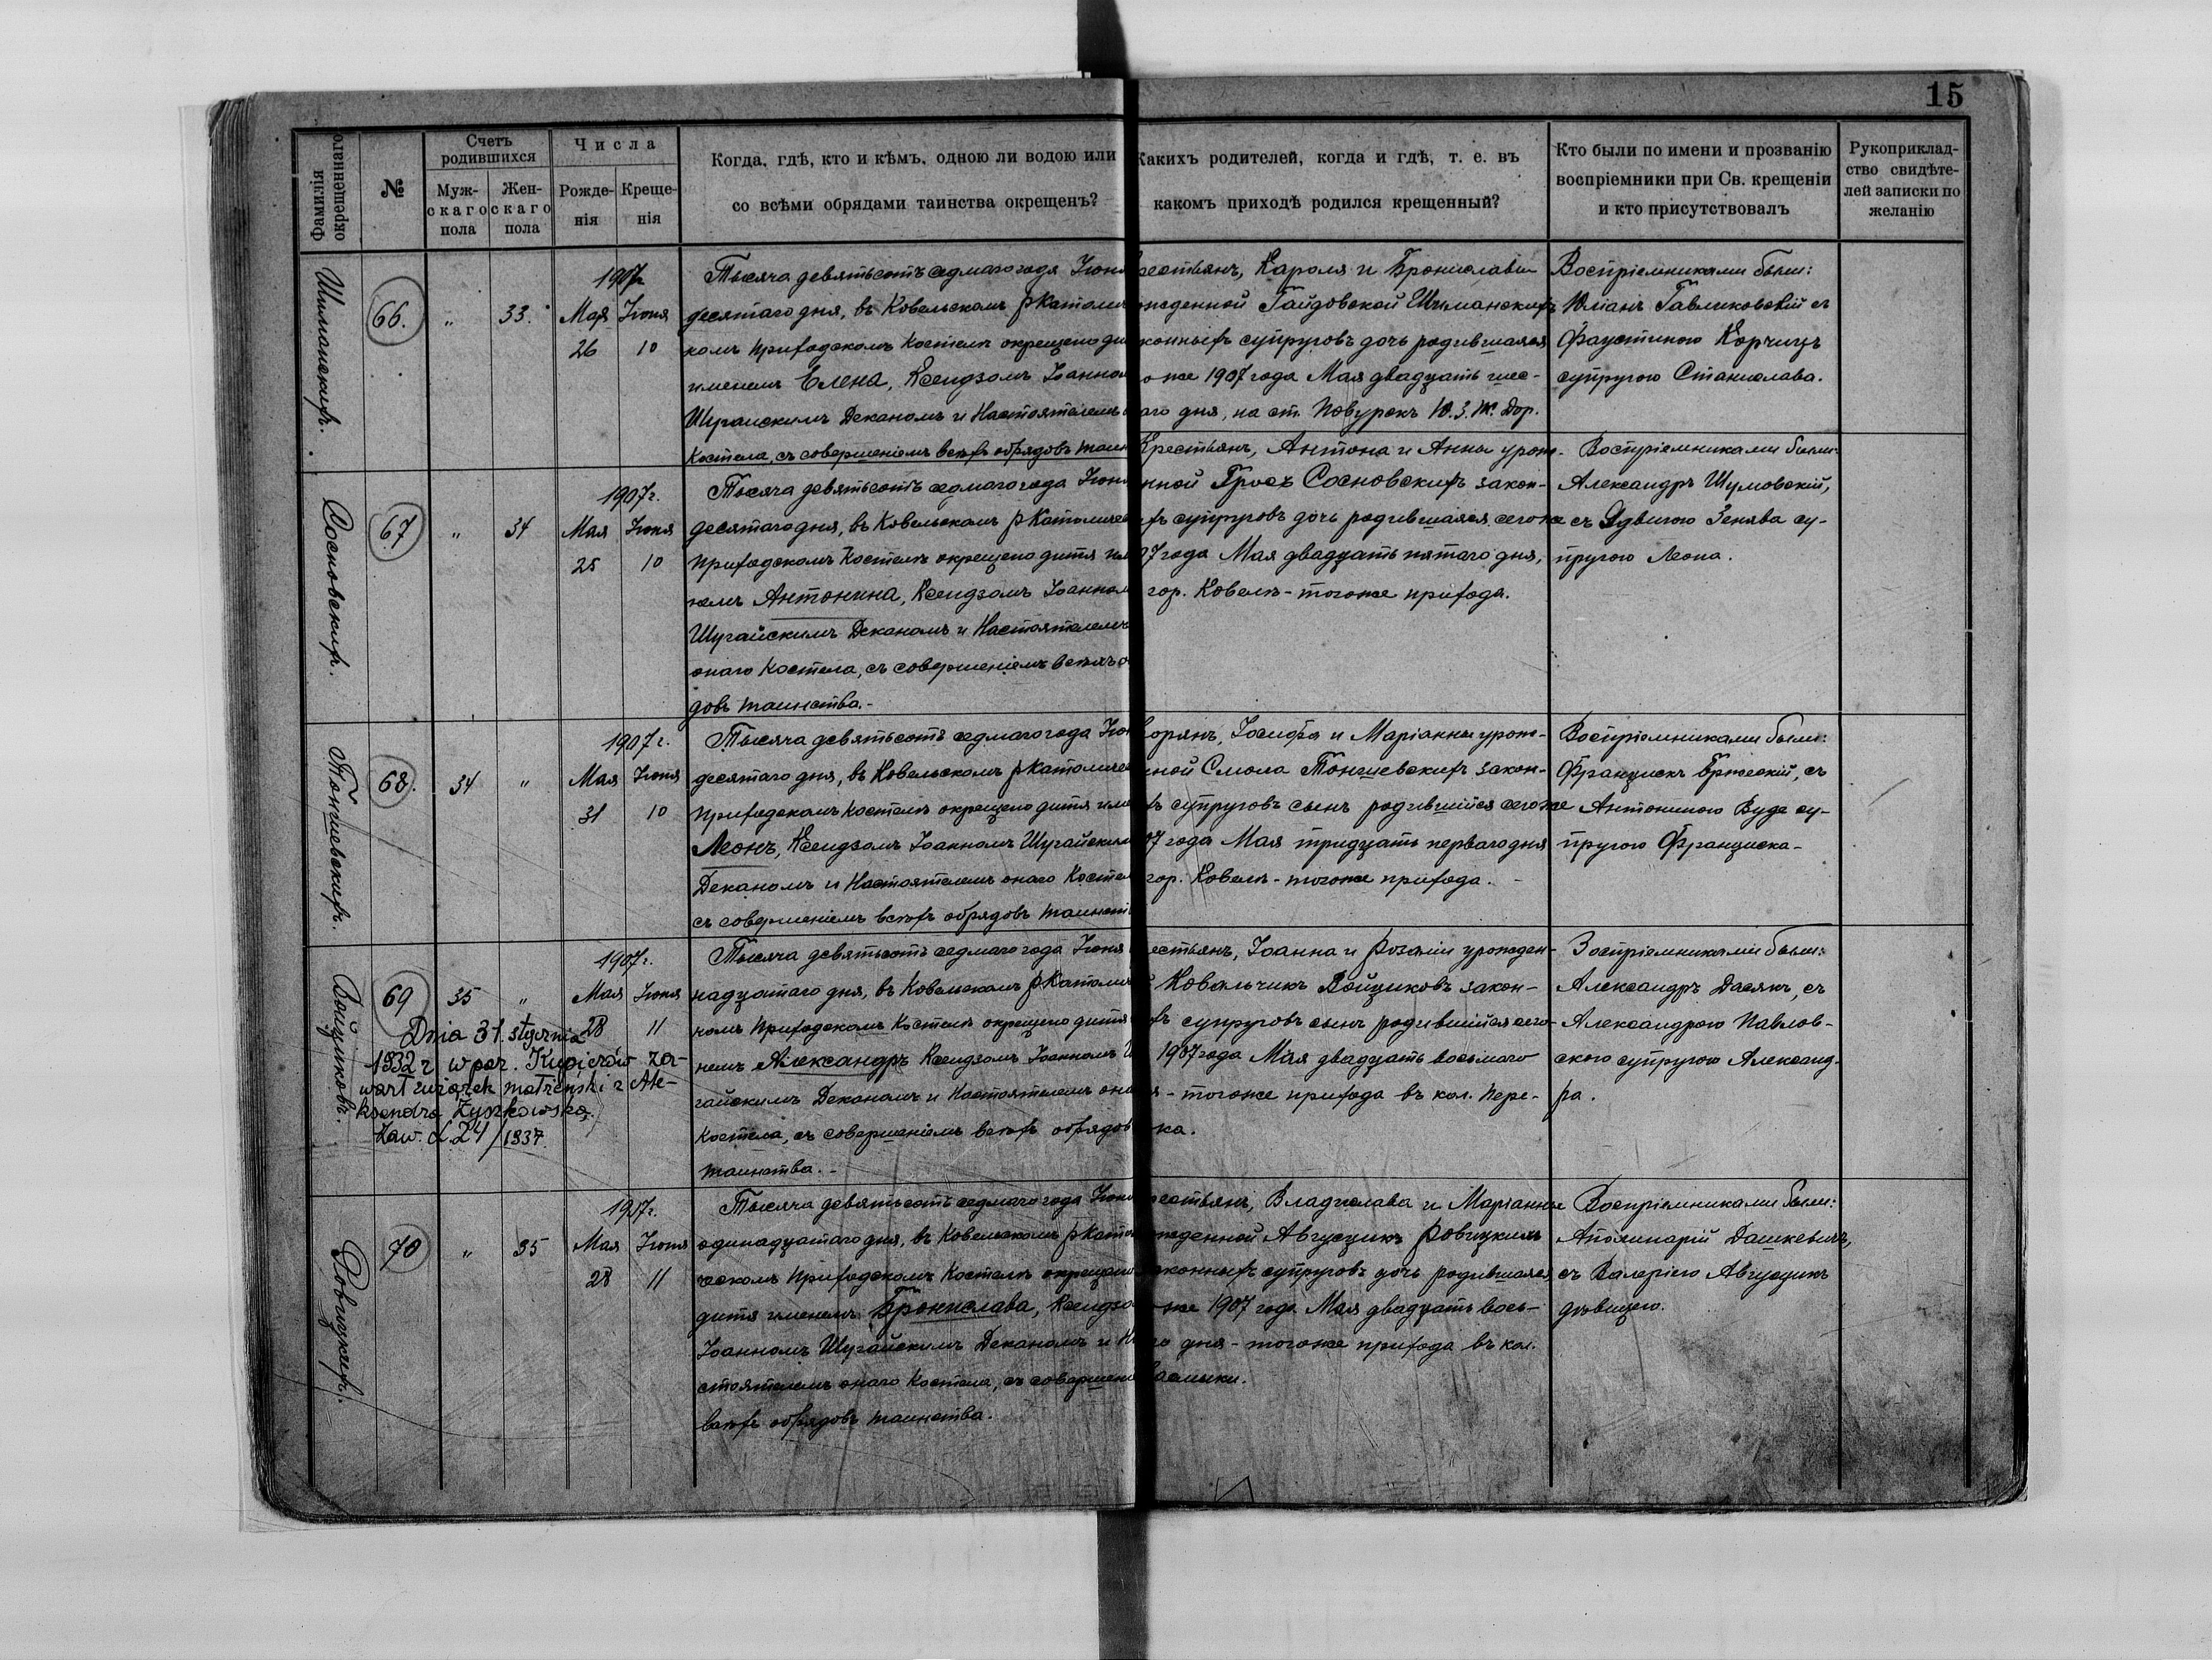 15
Фамилія окрещеннаго
№
Счетъ родившихся
Муж-скаго пола
Жен-скаго пола
Числа
Рожде-нія
Креще-нія
Когда, гдѣ, кто и кѣмъ, одною ли водою или
со всѣми обрядами таинства окрещенъ?
Какихъ родителей, когда и гдѣ, т. е. въ
какомъ приходѣ родился крещенный?
Кто были по имени и прозванію
воспріемники при Св. крещеніи
и кто присутствовалъ
Рукоприклад-
ство свидѣте-
лей записки по
желанію
Шиманскихъ.
66.
"
33.
1907 г.
Мая Іюня
26 10
Тысяча девятьсотъ седмаго года Іюн
десятаго дня, въ Ковельскомъ р Католич
комъ приходскомъ костелѣ окрещено ди
именемъ Елена, Ксендзомъ Іоанном
Шугайскимъ Деканомъ и Настоятелемъ
костела, съ совершеніемъ всѣхъ обрядовъ таин
рестьянъ, Кароля и Брониславы
жденной Гайдовской Шиманскихъ
конныхъ супруговъ дочь родившаяся
о же 1907 года Мая двадцать шес-
таго дня, на ст. Повурскъ Ю.З.Ж. Дор.
Воспріемниками были:
Юліанъ Гавликовскій съ
Фаустиною Корчицъ
супругою Станислава.
Сосновскихъ.
67
"
34
1907 г.
Мая Іюня
25 10
Тысяча девятьсотъ седмаго года Іюн
десятаго дня, въ Ковельскомъ р Католиче
приходскомъ костелѣ окрещено дитя име
немъ Антонина, Ксендзомъ Іоанном
Шугайскимъ Деканомъ и Настоятелемъ
онаго костела, съ совершеніемъ всѣхъ о
довъ таинства.-
Крестьянъ, Антона и Анны урож-
нной Гросъ Сосновскихъ закон-
хъ супруговъ дочь родившаяся сегоже
07 года Мая двадцать пятаго дня,
гор. Ковелѣ - тогоже прихода.
Воспріемниками были:
Александръ Шумовскій,
съ Ядвигою Зенява су-
пругою Леона.
Тонгиевскихъ.
68.
34
"
1907 г.
Мая Іюня
31 10
Тысяча девятьсотъ седмаго года Іюн
десятаго дня, въ Ковельскомъ р Католичес
приходскомъ костелѣ окрещено дитя име
Леонъ, Ксендзомъ Іоанномъ Шугайским
Деканомъ и Настоятелемъ онаго Костел
съ совершеніемъ всѣхъ обрядовъ таинст
ворянъ, Іосифа и Маріанны урож-
нной Смола Тонгиевскихъ закон-
хъ супруговъ сынъ родившійся сегоже
07 года Мая тридцать перваго дня
гор. Ковелѣ - тогоже прихода. -
Воспріемниками были:
Францискъ Бржескій, съ
Антониною Вуде су-
пругою Франциска-
Войциковъ.
69
35
"
1907 г.
Мая Іюня
28 11
Dnia 31. stycznia
1932 r w par. Kupiczów za-
warł związek małżeński z Ale-
ksandrą Żyszkowską.
Zaw. L 24/1937.
Тысяча девятьсотъ седмаго года Іюня
надцатаго дня, въ Ковельскомъ р Католич
комъ Приходскомъ Костелѣ окрещено дитя
немъ Александръ Ксендзомъ Іоанномъ Ш
гайскимъ Деканомъ и Настоятелемъ она
костела, съ совершеніемъ всѣхъ обрядов
таинства.-
естьянъ, Іоанна и Розаліи урожден-
й Ковальчикъ Войциковъ закон-
хъ супруговъ сынъ родившійся сего-
1907 года Мая двадцать восьмаго
я - тогоже прихода въ кол. Пере-
ка.
Воспріемниками были:
Александръ Дасякъ, съ
Александрою Павлов-
скою супругою Александ-
ра.
Ровицкихъ.
70
"
35
1907 г.
Мая Іюня
28 11
Тысяча девятьсотъ седмаго года Іюн
одинадцатаго дня, въ Ковельскомъ р Като
ческомъ Приходскомъ Костелѣ окрещено
дитя именемъ Бронислава, Ксендзо
Іоанномъ Шугайскимъ Деканомъ и На
стоятелемъ онаго Костела, съ совершені
всѣхъ обрядовъ таинства.
рестьянъ, Владислава и Маріанны
жденной Августинъ Ровицкихъ
конныхъ супруговъ дочь родившаяся
же 1907 года Мая двадцать вось-
го дня - тогоже прихода въ кол.
Воспріемниками были:
Аполинарій Дашкевичъ,
съ Валеріею Августинъ
дѣвицею.